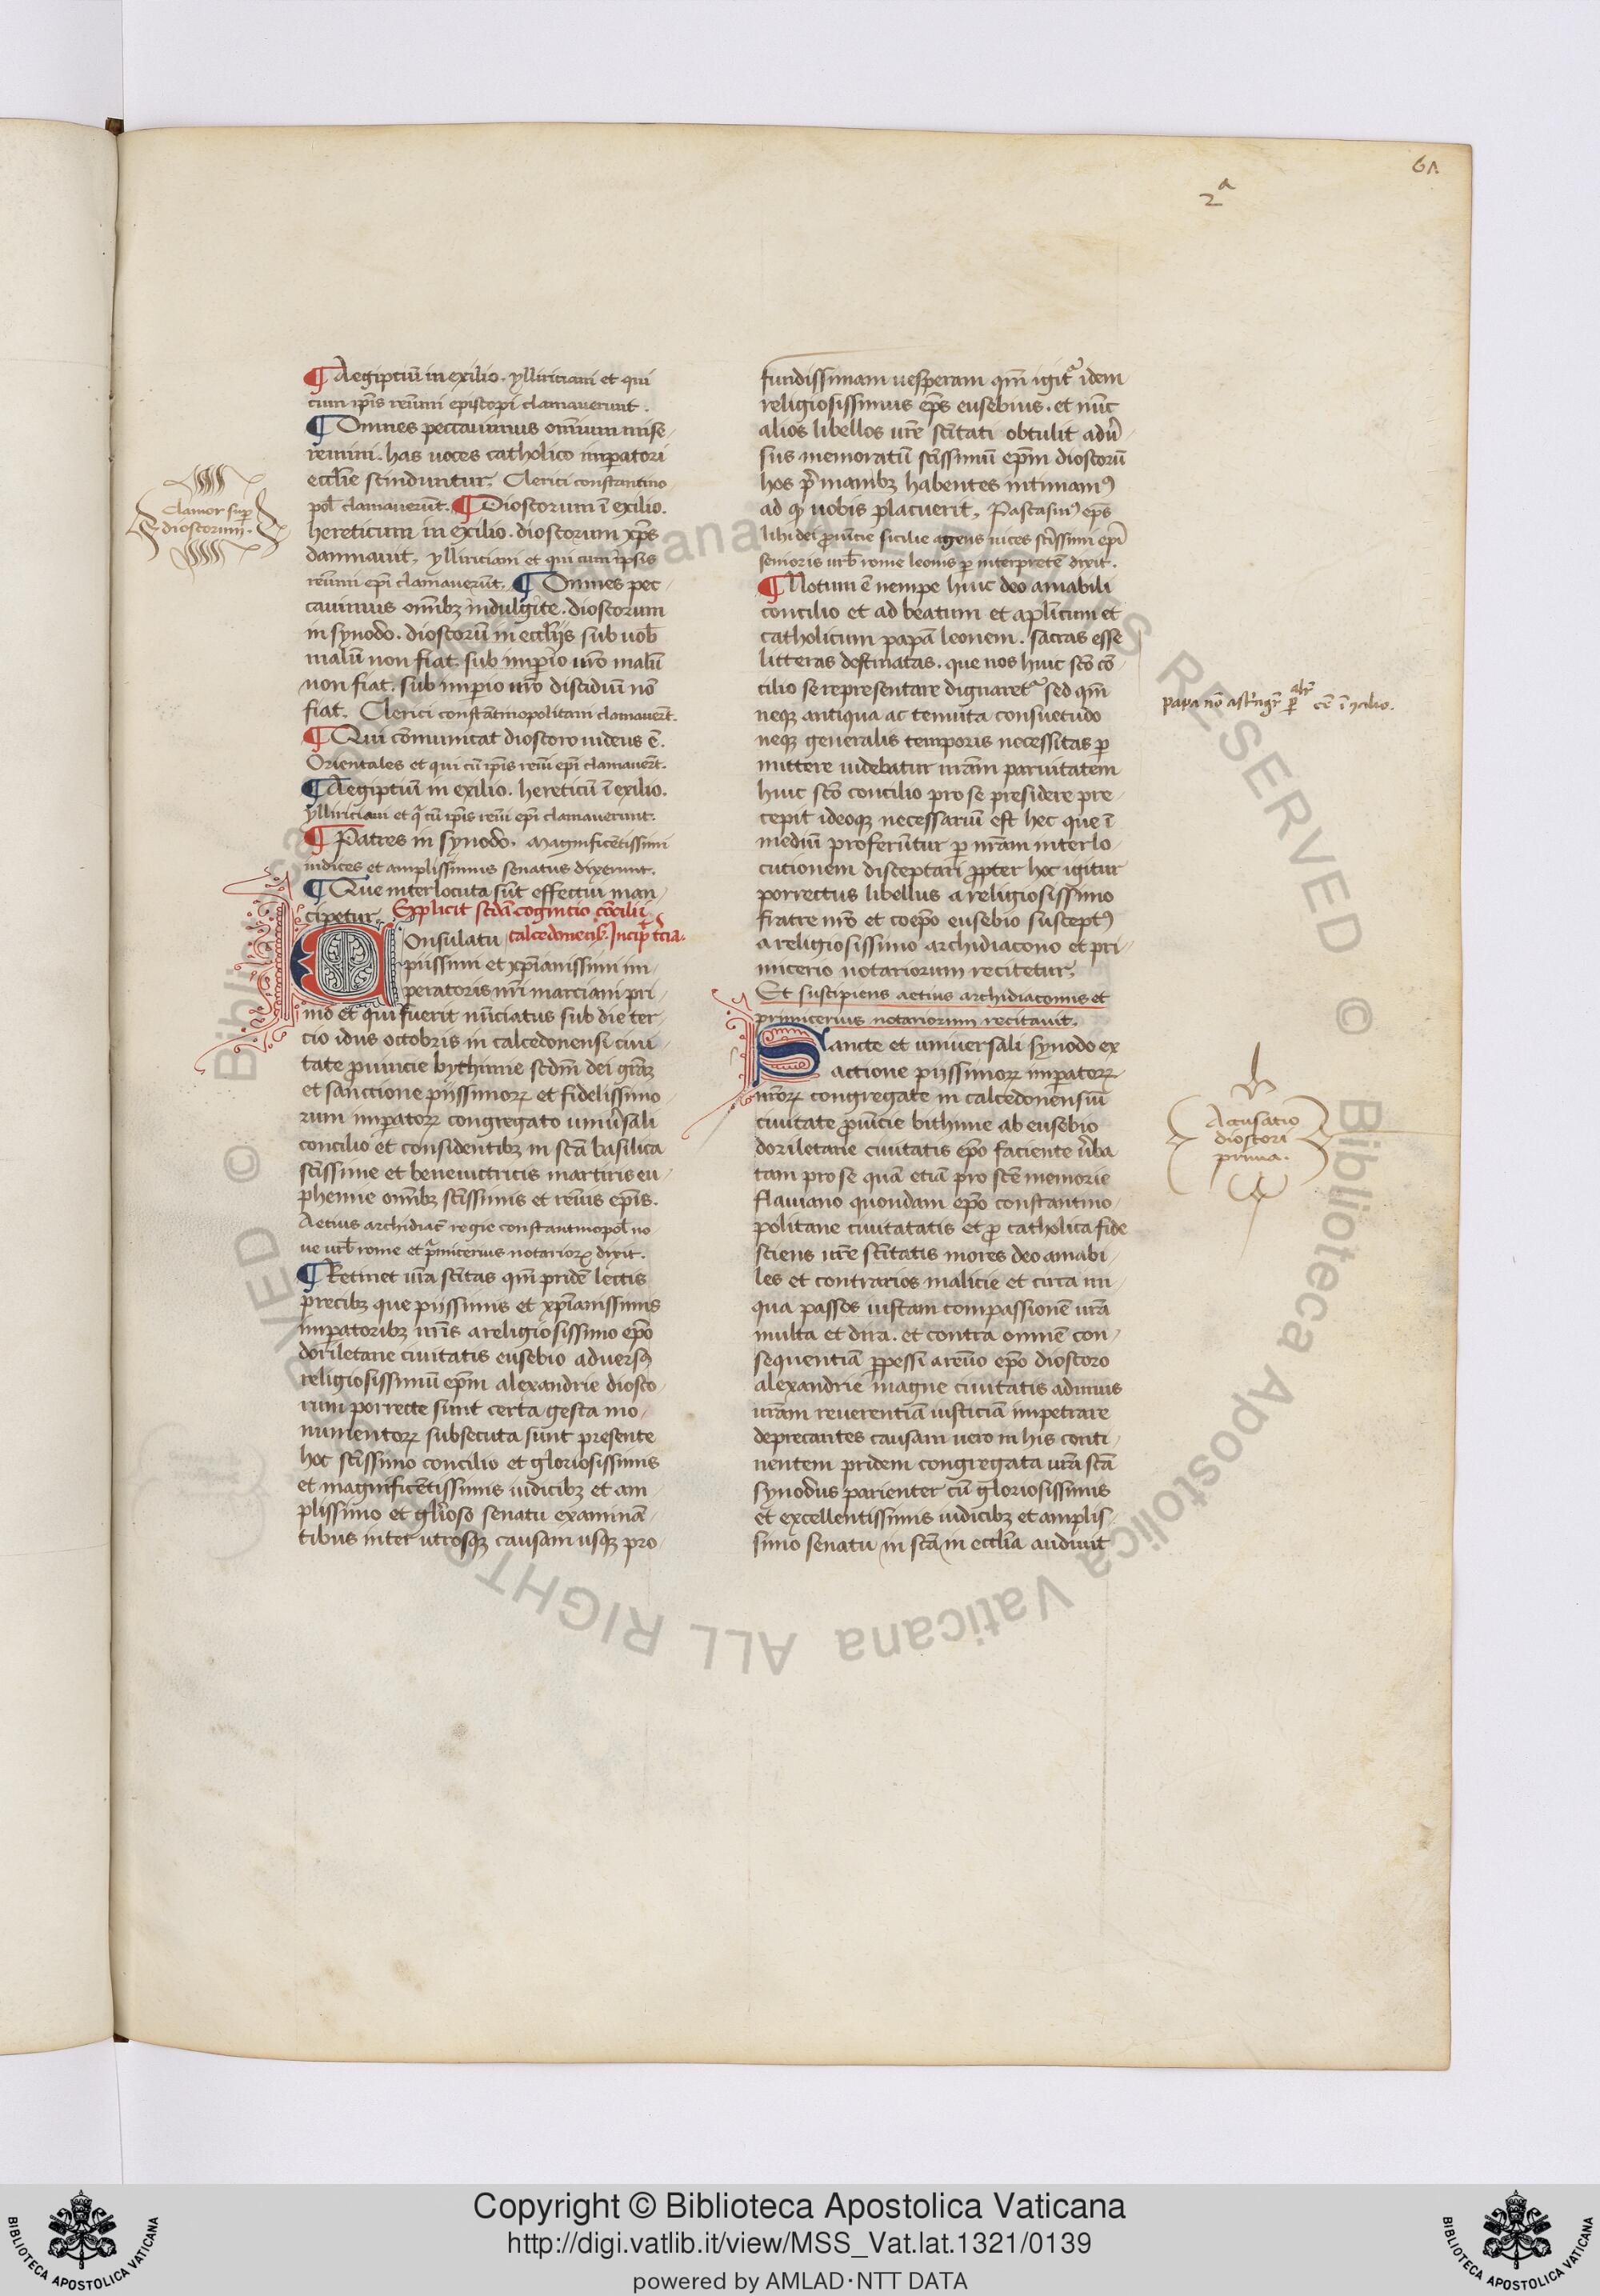 61
2ª
¶ Aegiptiũ in exilio. ylliriciani et qui
cum ip̃is reũmi episcopi clamaverunt.
¶ Omnes peccauimus omnium mise-
remini. has uoces catholico imp̃atori
eccl̃ie scinduntur. Clerici constantino
pol̃ clamauerũt. ¶ Dioscorum ĩ exilio.
hereticum in exilio. dioscorum xp̃s
damnauit. ylliriciani et qui cum ipsis
reũmi ep̃i clamauerũt. ¶ Omnes pec-
cauimus om̃ibꝫ indulgite. dioscorum
in synodo. dioscorũ in eccl̃iis sub uob̃
malũ non fiat. sub imp̃io ur̃o malũ
non fiat. sub imp̃io ur̃o discidiũ nõ
fiat. Clerici constãtinopolitani clamauer̃t.
¶ Qui cõmunicat dioscoro iudeus ẽ.
Orientales et qui cũ ip̃is reũi ep̃i clamauer̃t.
¶ Aegiptiũ in exilio. hereticũ ĩ exilio.
ylliriciani et q̃ cũ ip̃is reũi ep̃i clamauerunt.
¶ Patres in synodo. magnificẽtissimi
iudices et amplissimus senatus dixerunt.
¶ Que interlocuta sũt effectui man-
cipetur. Explicit scd̃a cognitio cõcilii
Consulatu calcedonen̄. Incip̃ t̃cia.
piissimi et xp̃ianissimi im-
peratoris nr̃i marciani pri-
mo et qui fuerit nũciatus sub die ter-
cio idus octobris in calcedonensi ciui
tate prouincie bythinie scdm̃ dei gr̃aꝫ
et sanccione piissimoꝝ et fidelissimo
rum imp̃atoꝝ congregato uniũsali
concilio et considentibꝫ in sc̃a basilica
sc̃issime et beneuictricis martiris eu-
phemie om̃ibꝫ sc̃issimis et reũis ep̃is.
Aetius archidiac̃ regie constantinopol̃ no-
ue urb̃ rome et p̃micerius notarioꝝ dixit.
¶ Retinet ur̃a sc̃itas qm̃ pridẽ lectis
precibꝫ que piissimis et xp̃ianissimis
imp̃atoribꝫ nr̃is a religiosissimo ep̃o
doriletane ciuitatis eusebio aduersꝰ
religiosissimũ ep̃m alexandrie diosco-
rum porrecte sunt certa gesta mo-
numentoꝝ subsecuta sunt presente
hoc sc̃issimo concilio et gloriosissimis
et magnificẽtissimis iudicibꝫ et am-
plissimo et gl̃ioso senatu examinã-
tibus inter utrosqꝫ causam usqꝫ pro-
fundissimam uesperam qm̃ igit̃ idem
religiosissimus ep̃s eusebius. et nũc
alios libellos ur̃e sc̃itati obtulit adũ-
sus memoratũ sc̃issimũ ep̃m dioscorũ
hos p̃ manibꝫ habentes intimamꝰ
ad qꝫ uobis placuerit. Pascasinꝰ ep̃s
libidei prouĩcie sicilie agens uices sc̃issimi ep̃i
senioris urb̃ rome leonis p̱ interpretẽ dixit.
¶ Notum ẽ nempe huic deo amabili
concilio et ad beatum et apl̃icum et
catholicum papã leonem. sacras esse
litteras destinatas. que nos huic sc̃o cõ-
cilio se representare dignaret̃ sed qm̃
neqꝫ antiqua ac tenuita consuetudo
neqꝫ generalis temporis necessitas p̱
mittere uidebatur nr̃am paruitatem
huic sc̃o concilio pro se presidere pre-
cepit ideoqꝫ necessariũ est hec que ĩ
mediũ proferũtur p̱ nr̃am interlo-
cutionem disceptari ꝓpter hoc igitur
porrectus libellus a religiosissimo
fratre nr̃o et coep̃o eusebio susceptꝰ
a religiosissimo archidiacono et pri-
micerio notariorum recitetur.
Et suscipiens aetius archidiaconus et
primicerius notariorum recitauit.
Sancte et uniuersali synodo ex
actione piissimoꝝ imp̃atoꝝ
nr̃oꝝ congregate in calcedonensiũ
ciuitate ꝓuĩcie bithinie ab eusebio
doriletane ciuitatis ep̃o faciente ũba
tam pro se quã etiã pro sc̃e memorie
flauiano quondam ep̃o constantino-
politane ciuitatatis et ꝓ catholica fide
sciens ur̃e sc̃itatis mores deo amabi-
les et contrarios malicie et circa ini-
qua passos iustam compassionẽ ur̃a
multa et dira. et contra omnẽ con-
sequentiã ꝑpessi a reũo ep̃o dioscoro
alexandrie magne ciuitatis adimus
ur̃am reuerentiã iusticiã impetrare
deprecantes causam uero in his conti-
nentem pridem congregata ur̃a sc̃a
synodus parienter cũ gloriosissimis
et excellentissimis iudicibꝫ et amplis-
simo senatu in sc̃a in eccl̃ia audiuit
Clamor sup̱
dioscorum.
papa nõ
Accusatio
dioscori
prima.
© Biblioteca Apostolica Vaticana ALL RIGHTS RESERVED
Copyright © Biblioteca Apostolica Vaticana
http://digi.vatlib.it/view/MSS_Vat.lat.1321/0139
powered by AMLAD·NTT DATA
BIBLIOTECA APOSTOLICA VATICANA
BIBLIOTECA APOSTOLICA VATICANA